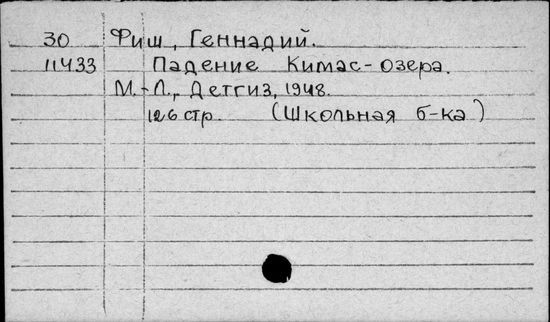 30 Фиш, Геннадий.
11433 Падение Кимас-озера.
М.-Л., Детгиз, 1948.
126 стр. (Школьная б-ка)